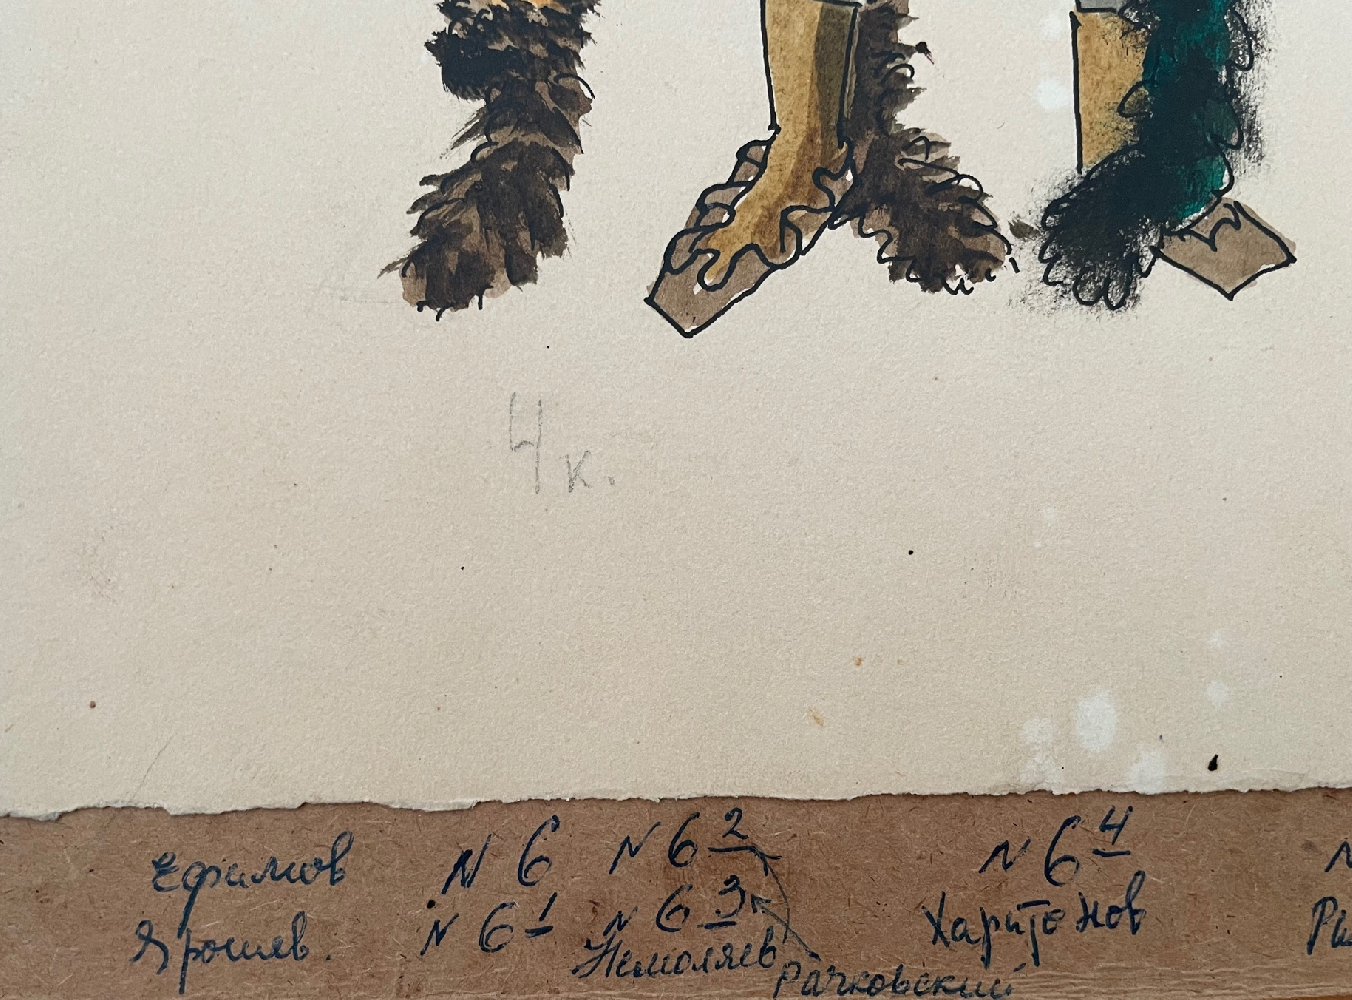 4к.
Ефимов N 6 N 6 2 N 6 4
Ярошев. N 6 1 N 6 3 Харитонов
Немоляев Рачковский